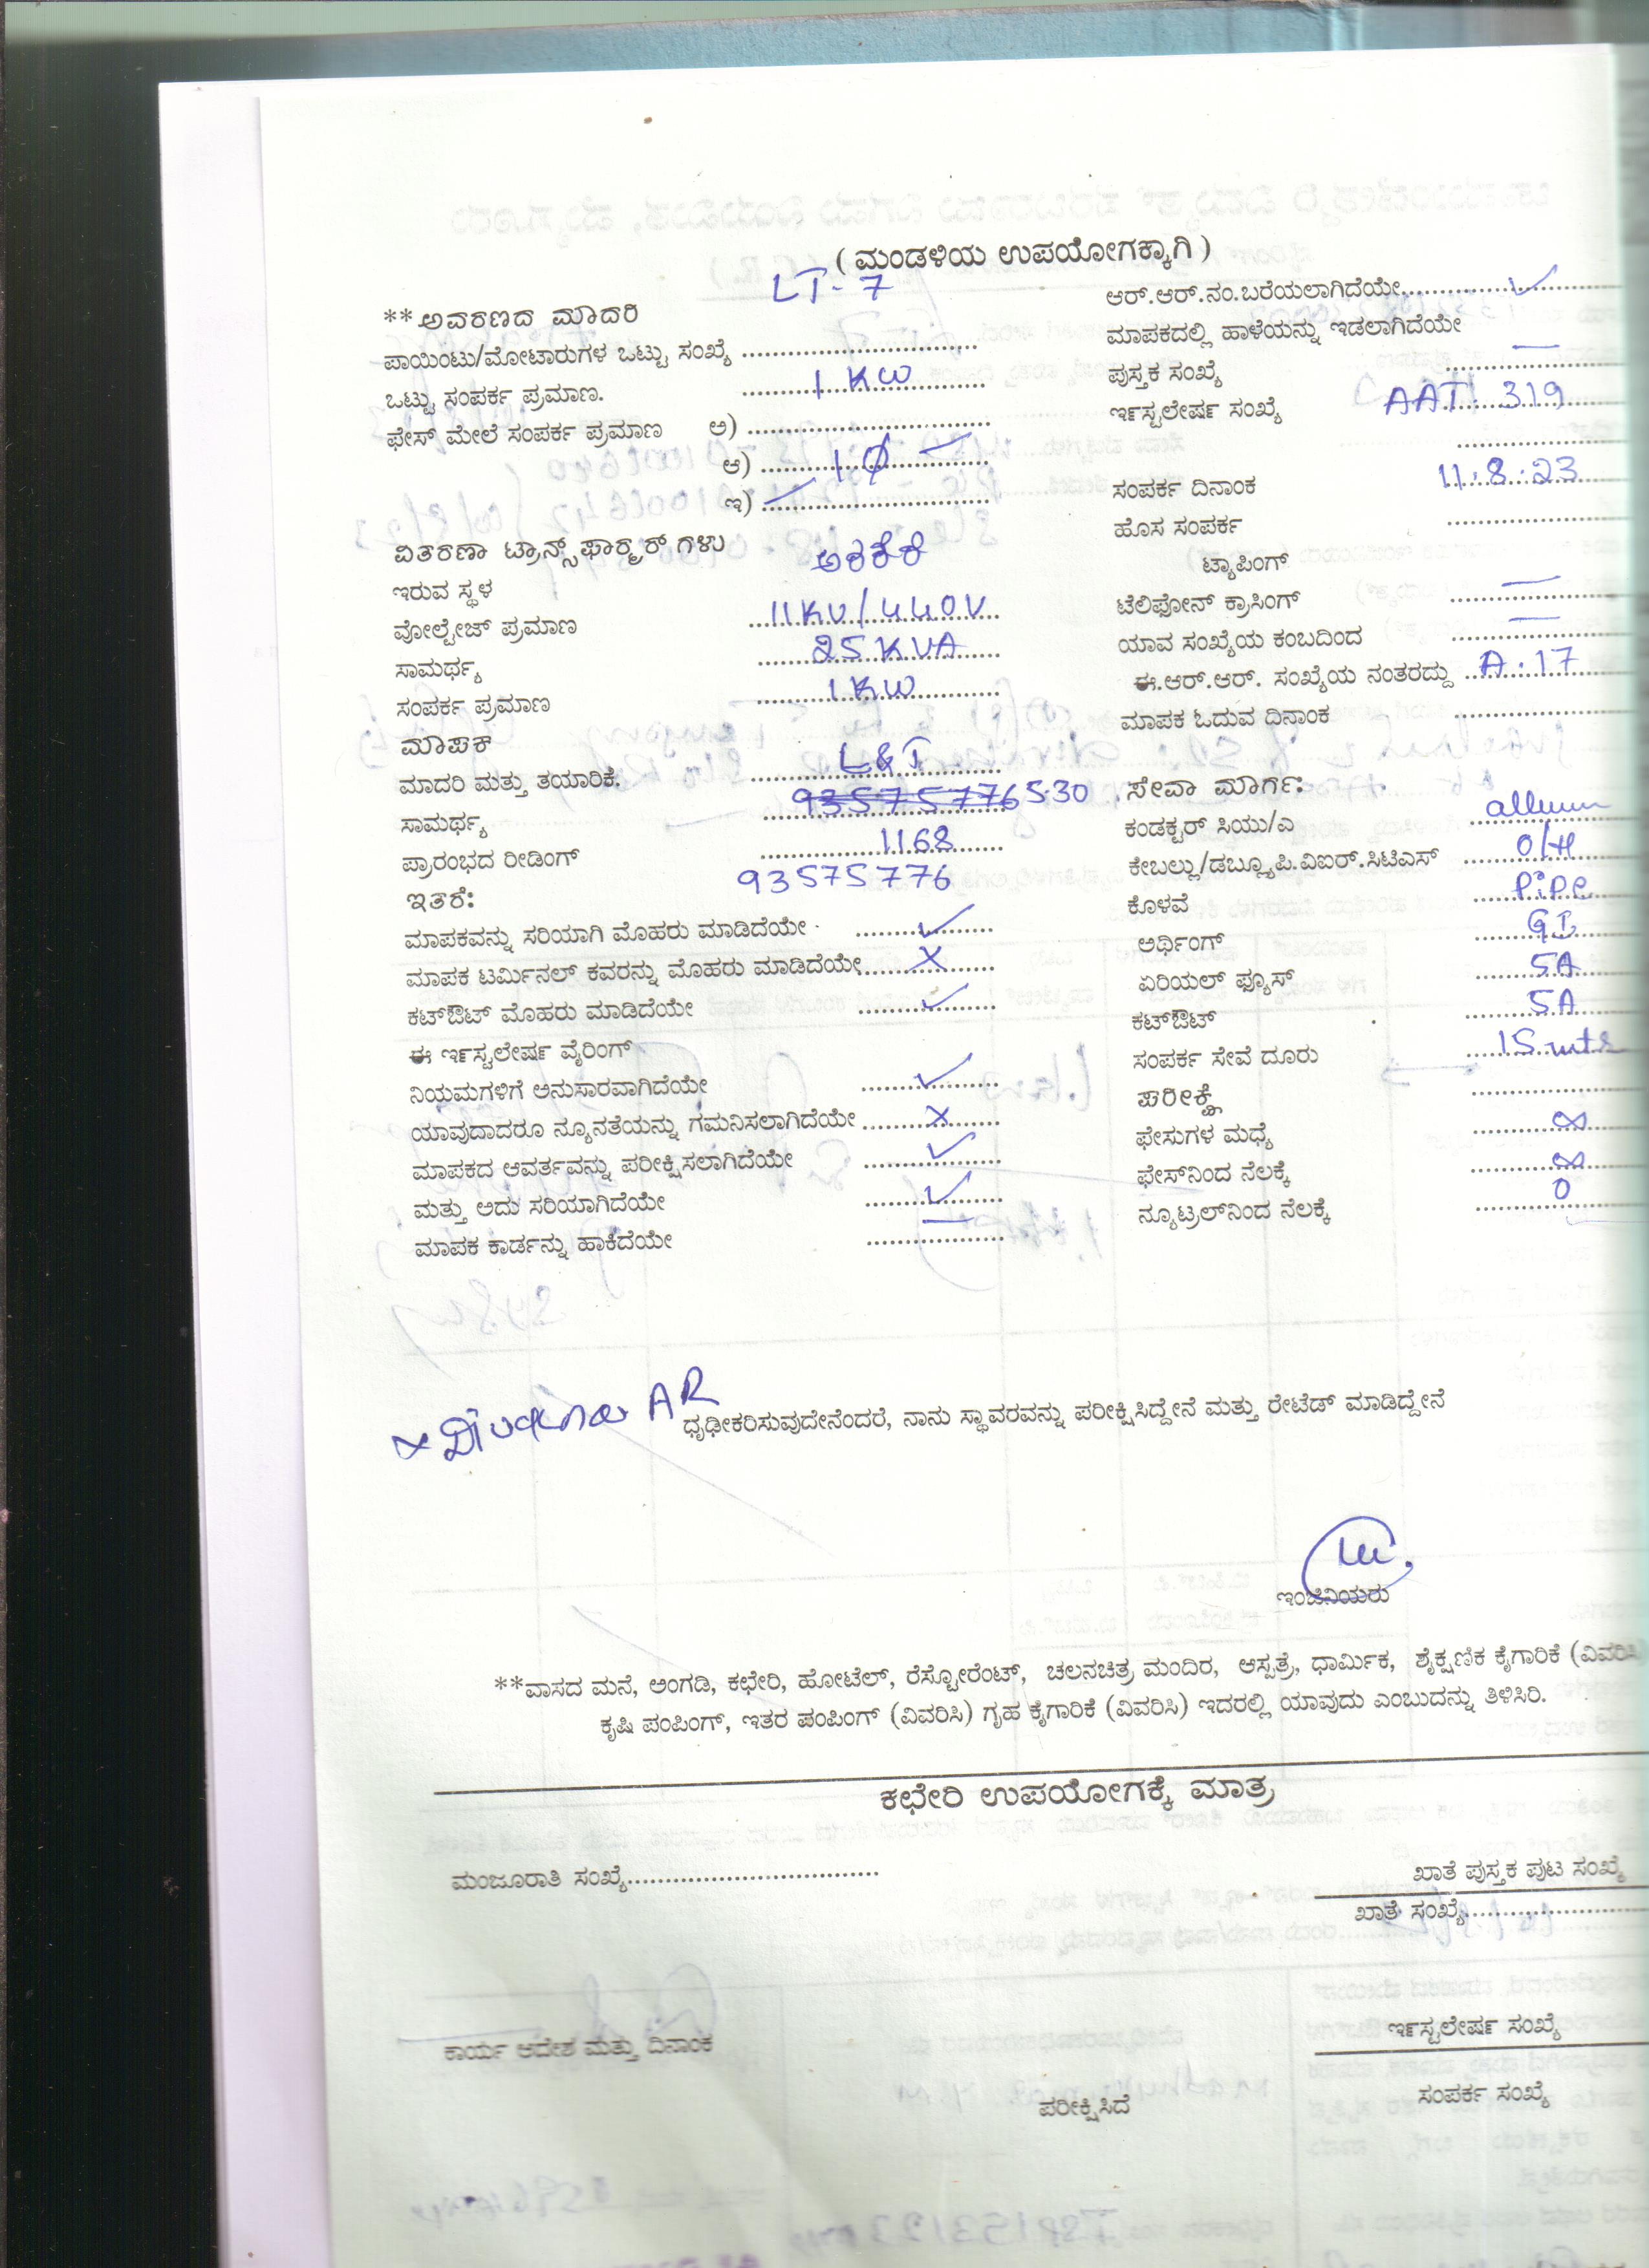 ( ಮಂಡಳಿಯ ಉಪಯೋಗಕ್ಕಾಗಿ )
**ಆವರಣದ ಮಾದರಿ LT-7
ಪಾಯಿಂಟು/ಮೋಟಾರುಗಳ ಒಟ್ಟು ಸಂಖ್ಯೆ ..............................
ಒಟ್ಟು ಸಂಪರ್ಕ ಪ್ರಮಾಣ. 1 KW
ಫೇಸ್ ಮೇಲೆ ಸಂಪರ್ಕ ಪ್ರಮಾಣ ಅ) ..............................
ಆ) 1 Ø —
ಇ) —
ವಿತರಣಾ ಟ್ರಾನ್ಸ್‌ಫಾರ್ಮರ್ ಗಳು
ಇರುವ ಸ್ಥಳ ಅರಕೆರೆ
ವೋಲ್ಟೇಜ್ ಪ್ರಮಾಣ 11KV/440V
ಸಾಮರ್ಥ್ಯ 25 KVA
ಸಂಪರ್ಕ ಪ್ರಮಾಣ 1 KW
ಮಾಪಕ
ಮಾದರಿ ಮತ್ತು ತಯಾರಿಕೆ. L&T
ಸಾಮರ್ಥ್ಯ 93575776 5-30
ಪ್ರಾರಂಭದ ರೀಡಿಂಗ್ 1168
ಇತರೆ: 93575776
ಮಾಪಕವನ್ನು ಸರಿಯಾಗಿ ಮೊಹರು ಮಾಡಿದೆಯೇ ✓
ಮಾಪಕ ಟರ್ಮಿನಲ್ ಕವರನ್ನು ಮೊಹರು ಮಾಡಿದೆಯೇ X
ಕಟ್‌ಔಟ್ ಮೊಹರು ಮಾಡಿದೆಯೇ ✓
ಈ ಇನ್‌ಸ್ಟಲೇಷನ್ ವೈರಿಂಗ್
ನಿಯಮಗಳಿಗೆ ಅನುಸಾರವಾಗಿದೆಯೇ ✓
ಯಾವುದಾದರೂ ನ್ಯೂನತೆಯನ್ನು ಗಮನಿಸಲಾಗಿದೆಯೇ X
ಮಾಪಕದ ಆವರ್ತವನ್ನು ಪರೀಕ್ಷಿಸಲಾಗಿದೆಯೇ ✓
ಮತ್ತು ಅದು ಸರಿಯಾಗಿದೆಯೇ ✓
ಮಾಪಕ ಕಾರ್ಡನ್ನು ಹಾಕಿದೆಯೇ —
ಆರ್.ಆರ್.ನಂ.ಬರೆಯಲಾಗಿದೆಯೇ ✓
ಮಾಪಕದಲ್ಲಿ ಹಾಳೆಯನ್ನು ಇಡಲಾಗಿದೆಯೇ
ಪುಸ್ತಕ ಸಂಖ್ಯೆ —
ಇನ್‌ಸ್ಟಲೇಷನ್ ಸಂಖ್ಯೆ AAT 319
ಸಂಪರ್ಕ ದಿನಾಂಕ 11.8.23
ಹೊಸ ಸಂಪರ್ಕ ....................
ಟ್ಯಾಪಿಂಗ್
ಟೆಲಿಫೋನ್ ಕ್ರಾಸಿಂಗ್ —
ಯಾವ ಸಂಖ್ಯೆಯ ಕಂಬದಿಂದ —
ಈ.ಆರ್.ಆರ್. ಸಂಖ್ಯೆಯ ನಂತರದ್ದು A.17
ಮಾಪಕ ಓದುವ ದಿನಾಂಕ ....................
ಸೇವಾ ಮಾರ್ಗ:
ಕಂಡಕ್ಟರ್ ಸಿಯು/ಎ
ಕೇಬಲ್ಲು/ಡಬ್ಲ್ಯೂಪಿ.ವಿಐರ್.ಸಿಟಿಎಸ್ O/H
ಕೊಳವೆ Pipe
ಅರ್ಥಿಂಗ್ GI
ಏರಿಯಲ್ ಫ್ಯೂಸ್ 5A
ಕಟ್‌ಔಟ್ 5A
ಸಂಪರ್ಕ ಸೇವೆ ದೂರು 15 mts
ಪರೀಕ್ಷೆ ....................
ಫೇಸುಗಳ ಮಧ್ಯೆ ∞
ಫೇಸ್‌ನಿಂದ ನೆಲಕ್ಕೆ ∞
ನ್ಯೂಟ್ರಲ್‌ನಿಂದ ನೆಲಕ್ಕೆ 0
Divakara AR ಧೃಢೀಕರಿಸುವುದೇನೆಂದರೆ, ನಾನು ಸ್ಥಾವರವನ್ನು ಪರೀಕ್ಷಿಸಿದ್ದೇನೆ ಮತ್ತು ರೇಟೆಡ್ ಮಾಡಿದ್ದೇನೆ
ಇಂಜಿನಿಯರು
**ವಾಸದ ಮನೆ, ಅಂಗಡಿ, ಕಛೇರಿ, ಹೋಟೆಲ್, ರೆಸ್ಟೋರೆಂಟ್, ಚಲನಚಿತ್ರ ಮಂದಿರ, ಆಸ್ಪತ್ರೆ, ಧಾರ್ಮಿಕ, ಶೈಕ್ಷಣಿಕ ಕೈಗಾರಿಕೆ (ವಿವರಿಸಿ)
ಕೃಷಿ ಪಂಪಿಂಗ್, ಇತರ ಪಂಪಿಂಗ್ (ವಿವರಿಸಿ) ಗೃಹ ಕೈಗಾರಿಕೆ (ವಿವರಿಸಿ) ಇದರಲ್ಲಿ ಯಾವುದು ಎಂಬುದನ್ನು ತಿಳಿಸಿರಿ.
ಕಛೇರಿ ಉಪಯೋಗಕ್ಕೆ ಮಾತ್ರ
ಮಂಜೂರಾತಿ ಸಂಖ್ಯೆ..............................
ಖಾತೆ ಪುಸ್ತಕ ಪುಟ ಸಂಖ್ಯೆ
ಖಾತೆ ಸಂಖ್ಯೆ....................
ಇನ್‌ಸ್ಟಲೇಷನ್ ಸಂಖ್ಯೆ
ಕಾರ್ಯ ಆದೇಶ ಮತ್ತು ದಿನಾಂಕ
ಸಂಪರ್ಕ ಸಂಖ್ಯೆ
ಪರೀಕ್ಷಿಸಿದೆ